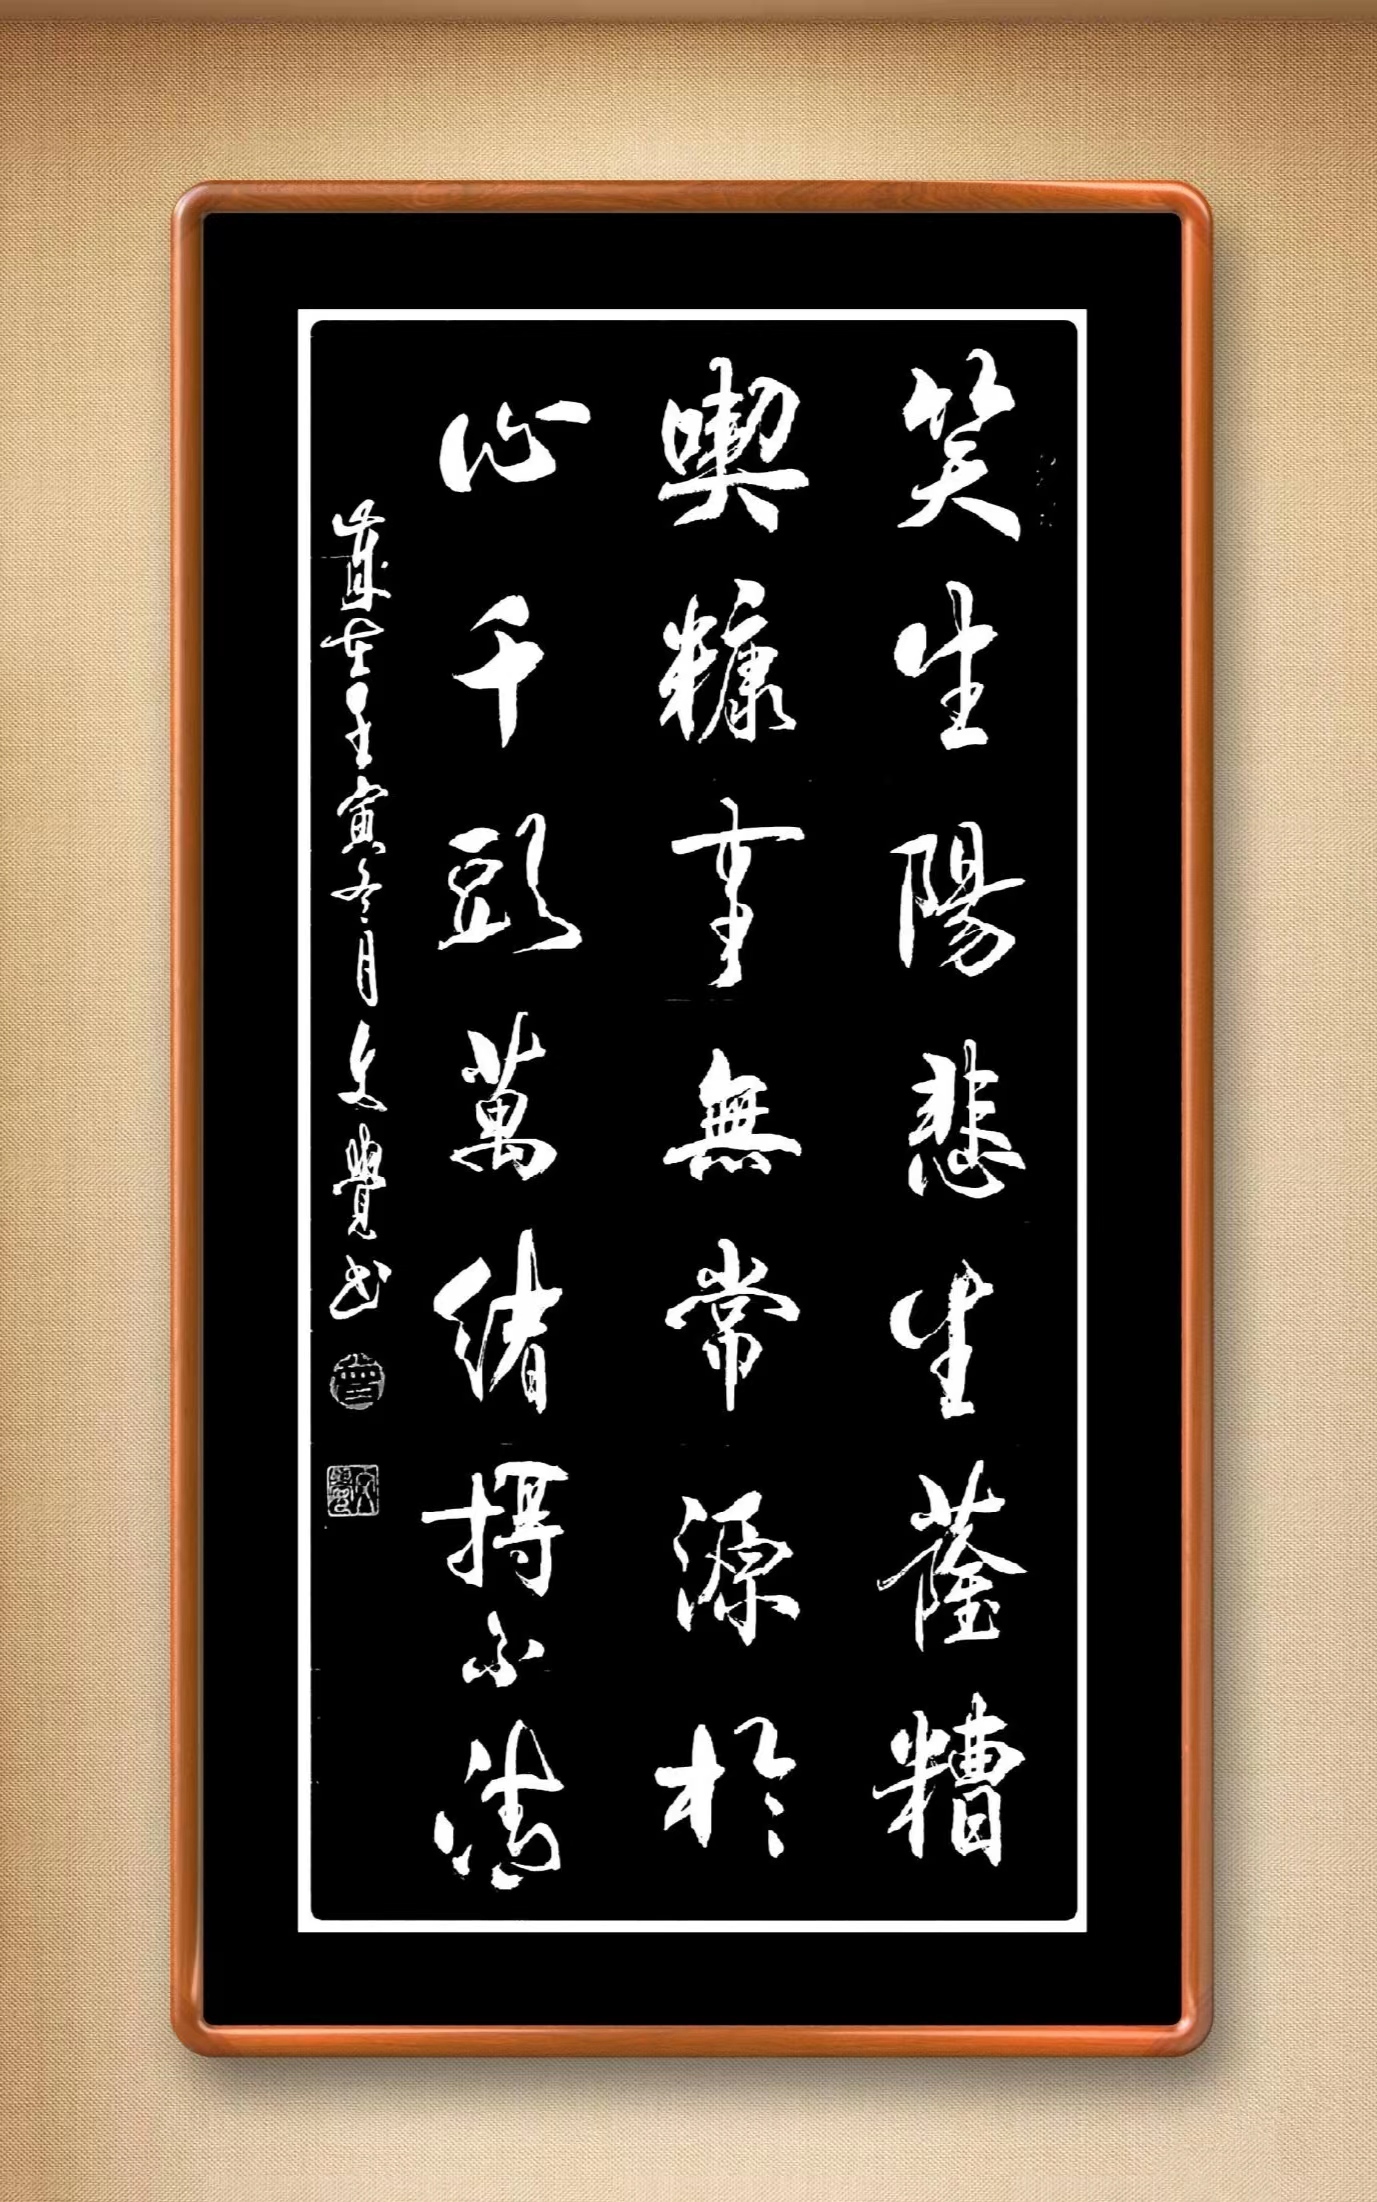 笑生陽悲生蔭糟
喫糠事無常源於
心千頭萬緒撏不清
歲在壬寅冬月文覺书